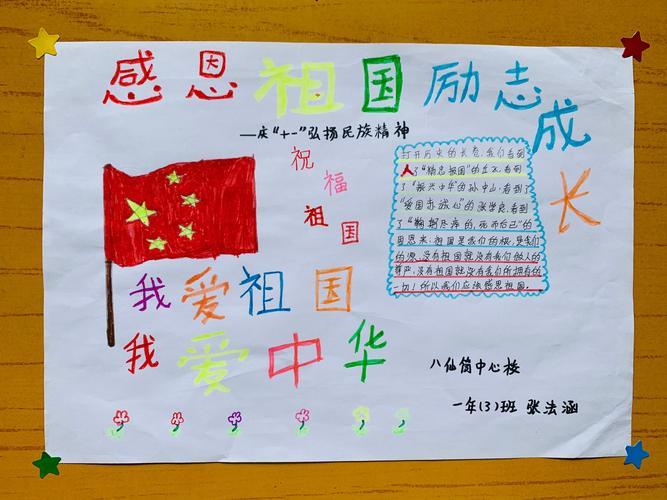 感恩祖国励志成长
—庆“十一”弘扬民族精神
祝福祖国
打开历史的长卷,我们看到
人了“励志报国”的岳飞,看到
了“振兴中华”的孙中山,看到了
“爱国赤诚心”的张学良,看到
了“鞠躬尽瘁的,死而后已”的
周恩来:祖国是我们的根,是我们
的源,没有祖国就没有我们做人的
尊严,没有祖国就没有我们所拥有的
一切!所以我们应该感恩祖国。
我爱祖国
我爱中华
八仙筒中心校
一年(3)班 张法涵